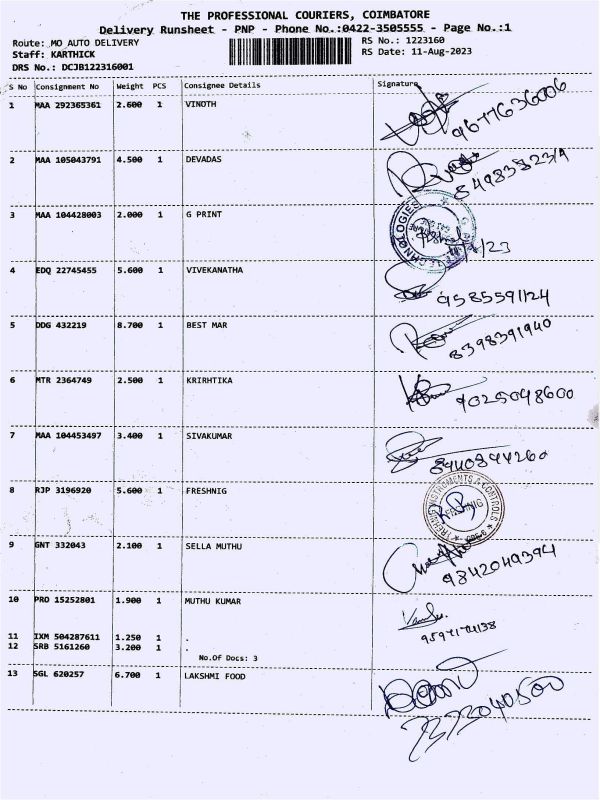 THE PROFESSIONAL COURIERS, COIMBATORE
Delivery Runsheet - PNP - Phone No.:0422-3505555 - Page No.:1
Route: MO AUTO DELIVERY RS No.: 1223160
Staff: KARTHICK RS Date: 11-Aug-2023
DRS No.: DCJB122316001
S No Consignment No Weight PCS Consignee Details Signature
1 MAA 292365361 2.600 1 VINOTH
9677636006
2 MAA 105043791 4.500 1 DEVADAS
3 MAA 104428003 2.000 1 G PRINT
4 EDQ 22745455 5.600 1 VIVEKANATHA
9585591124
5 DDG 432219 8.700 1 BEST MAR
8398391940
6 MTR 2364749 2.500 1 KRIRHTIKA
9025048600
7 MAA 104453497 3.400 1 SIVAKUMAR
8940894260
8 RJP 3196920 5.600 1 FRESHNIG
9 GNT 332043 2.100 1 SELLA MUTHU
9842049394
10 PRO 15252801 1.900 1 MUTHU KUMAR
11 IXM 504287611 1.250 1 .
12 SRB 5161260 3.200 1 .
No.Of Docs: 3
13 SGL 620257 6.700 1 LAKSHMI FOOD